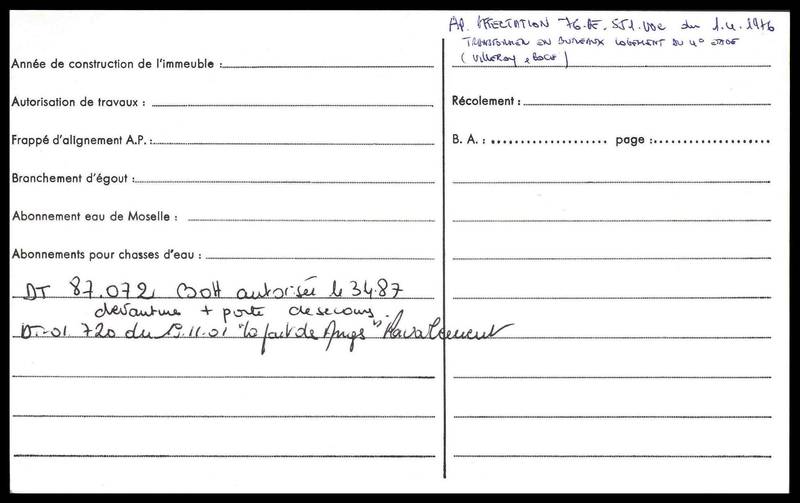 AP. AFFECTATION 76.AF.551.VOC du 1.4.1976
TRANSFORMER EN BUREAUX LOGEMENT DU 4° ETAGE
(VILLEROY & BOCH)
Année de construction de l'immeuble :
Autorisation de travaux :
Récolement :
Frappé d'alignement A.P. :
B. A. : page :
Branchement d'égout :
Abonnement eau de Moselle :
Abonnements pour chasses d'eau :
DT 87.072 autorisée le 3.4.87
devanture + porte de secours.
DT.01 720 du 19.11.01 "la part des Anges" Ravalement